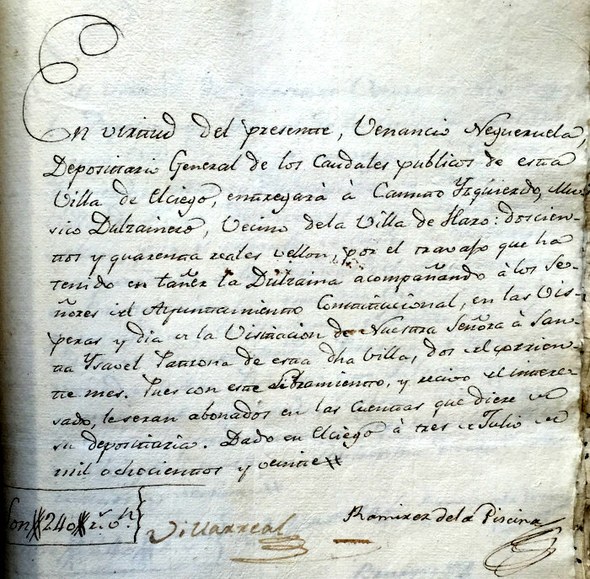 En virtud del presente, Venancio Negueruela,
Depositario General de los Caudales publicos de esta
Villa de Elciego, entregará à Camino Yzquierdo, Mu-
sico Dulzainero, Vecino de la Villa de Haro: doscien-
tos y quarenta reales vellon, por el travajo que ha
tenido en tañer la Dulzaina acompañando à los Se-
ñores del Ayuntamiento Constitucional, en las Vis-
peras y dia de la Visitacion de Nuestra Señora à San-
ta Ysavel Patrona de esta dha Villa, dos del corrien-
te mes. Pues con este Libramiento, y recivo del intere-
sado, le seran abonados en las Cuentas que diere de
su depositaria. Dado en Elciego à tres de Julio de
mil ochocientos y veinte
Son 240 rs. vn.
Villarreal
Ramirez de la Piscina